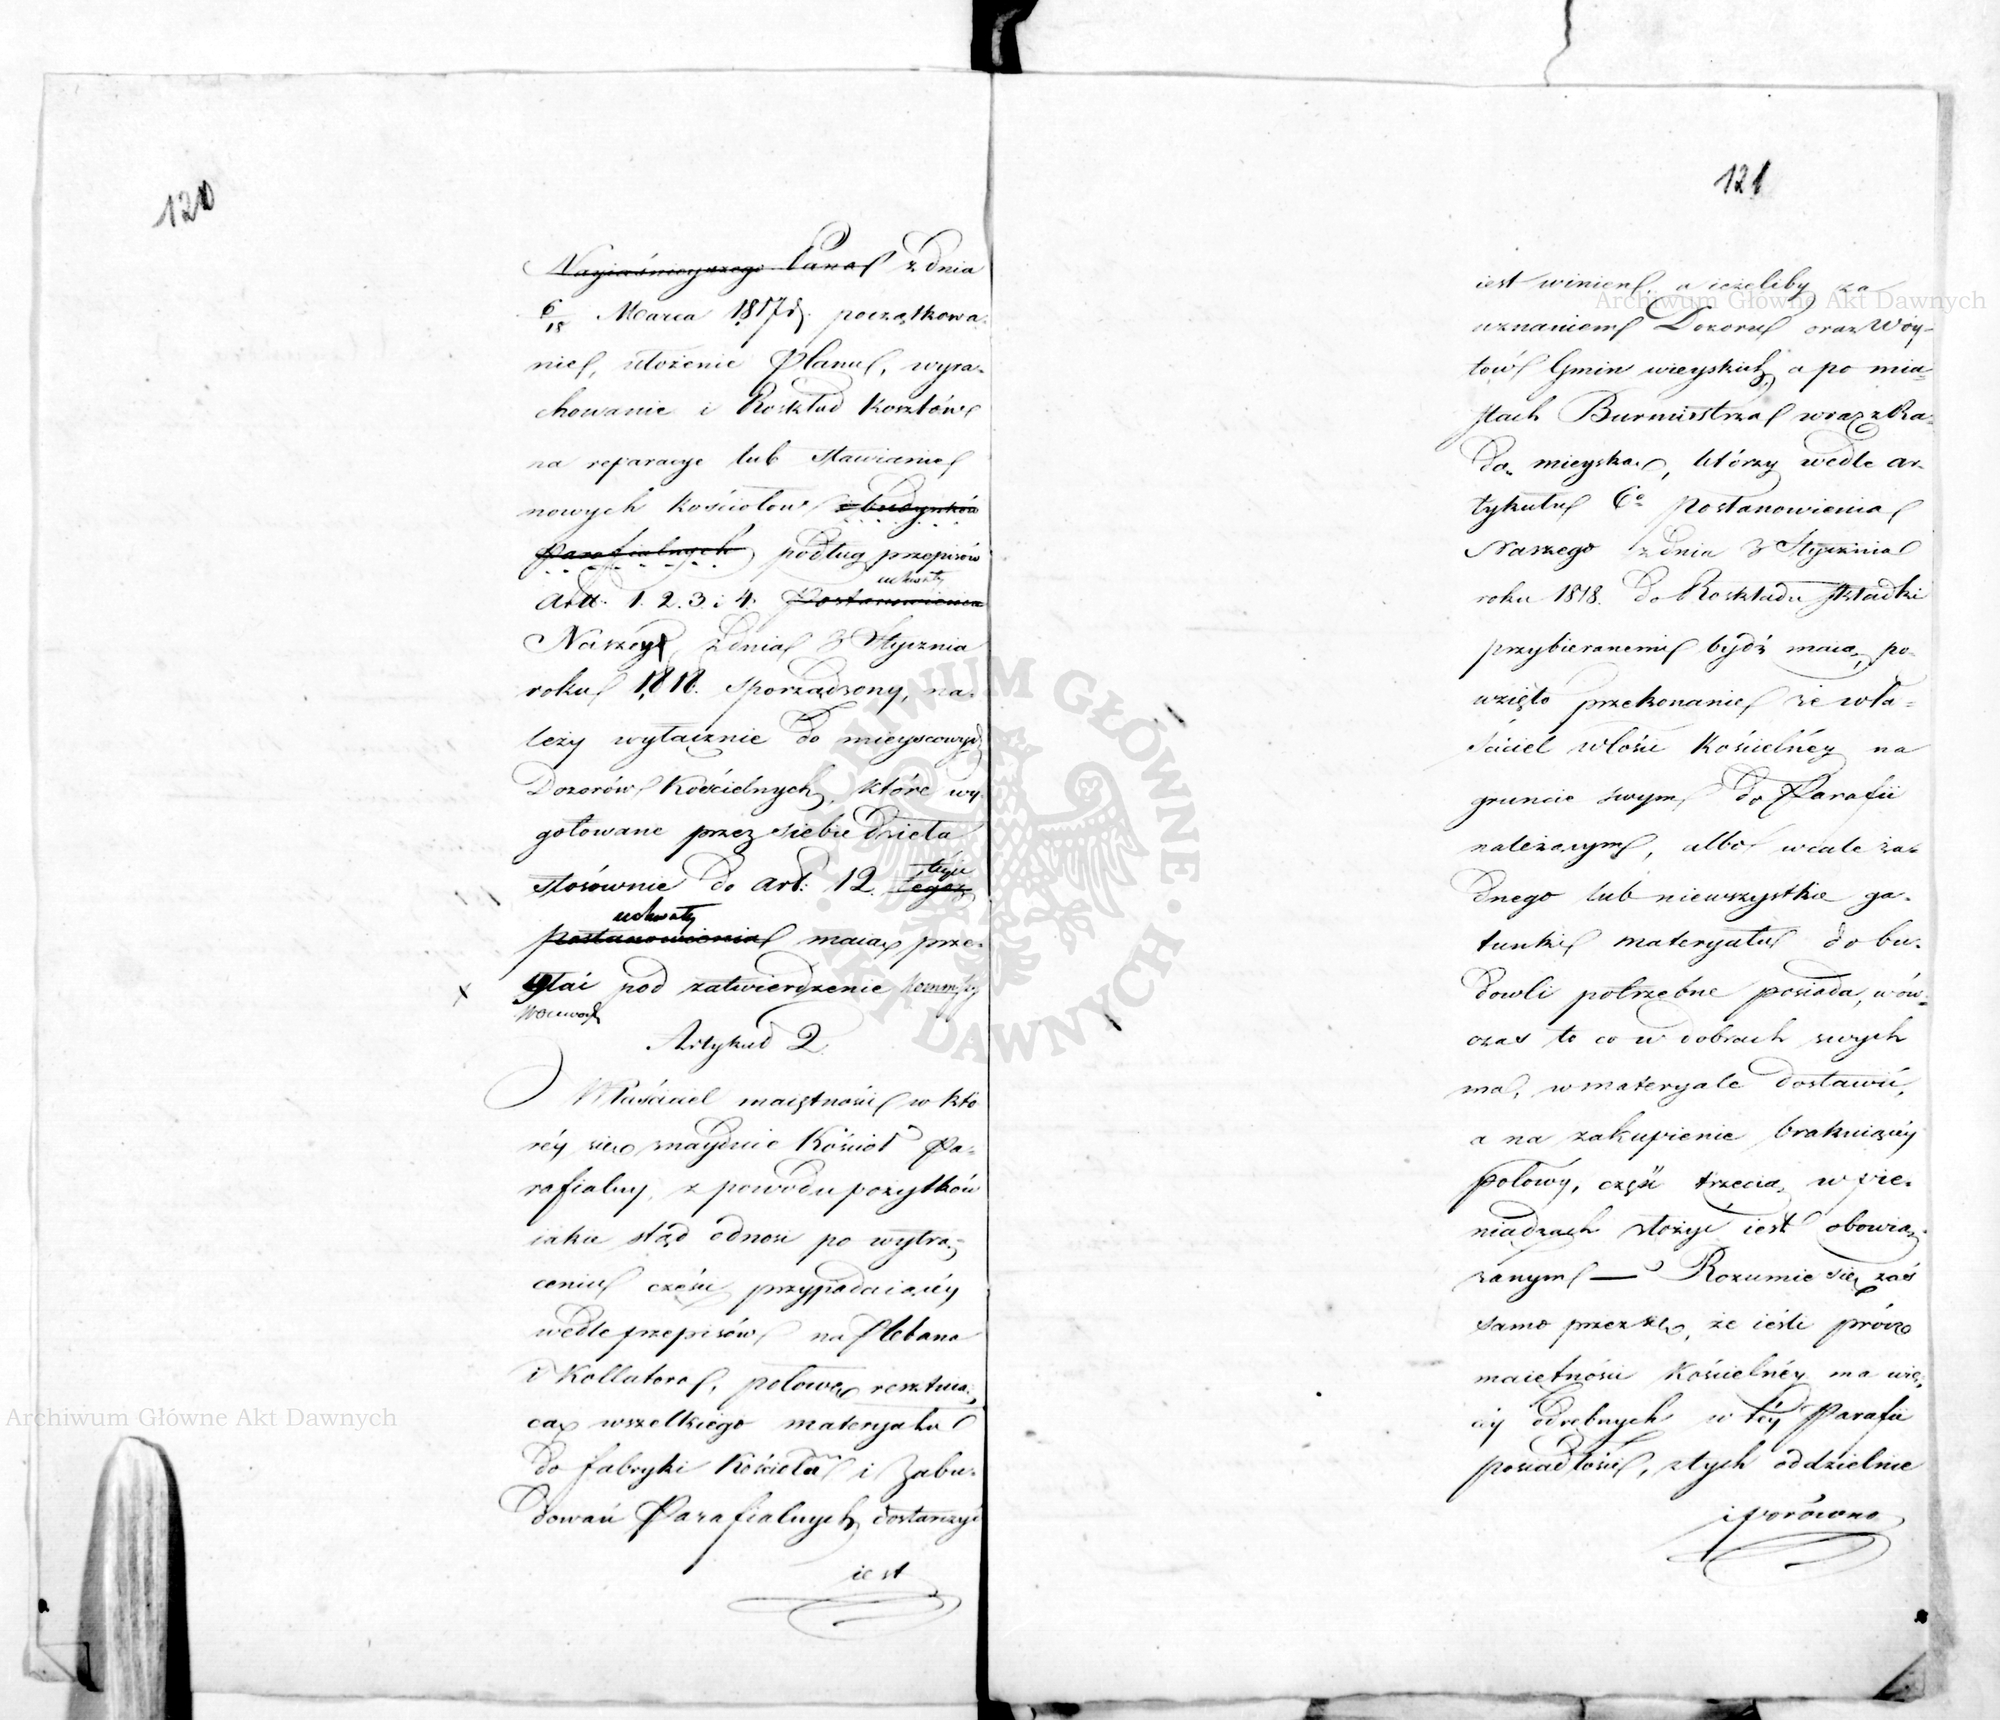 120
Nayjaśnieyszego Pana z dnia
6/18 Marca 1817 r. początkowa-
nie, ułożenie Planu, wyra-
chowanie i Rozkład kosztów
na reparacye lub stawianie
nowych kościołow i budynków
Parafialnych podług przepisów
uchwały
Artt. 1. 2. 3. i 4. Postanowienia
Naszey z dnia 3 Stycznia
roku 1818. sporządzony, na-
leży wyłącznie do mieyscowych
Dozorów Kościelnych, które wy-
gotowane przez siebie dzieła
téyże
stosównie do art: 12. tegoż
uchwały
postanowienia maią prze-
x słać pod zatwierdzenie Kommissy
Woiewod
Artykuł 2.
Właściciel maiętności w któ
réy się znayduie Kościół Pa-
rafialny, z powodu pożytków
iakie stąd odnosi po wytrą-
ceniu części przypadaiącéy
wedle przepisów na Plebana
i Kollatora, połowę resztuią-
cą wszelkiego materyału
do fabryki Kościoła i Zabu-
dowań Parafialnych dostarczyć
iest
121
iest winien, a ieżeliby za
uznaniem Dozoru oraz Wóy-
tów Gmin wieyskich, a po mia-
stach Burmistrza wraz z Ra-
dą mieyską, którzy wedle ar-
tykułu 6o Postanowienia
Naszego z dnia 3 Stycznia
roku 1818. do Rozkładu składki
przybieranemi bydź maią, po-
wzięto przekonanie że wła-
ściciel włości Kościelnéy na
gruncie swym do Parafii
należącym, albo wcale ża-
dnego lub niewszystkie ga-
tunki materyału do bu-
dowli potrzebne posiada, wów-
czas to co w dobrach swych
ma, w materyale dostawić,
a na zakupienie brakuiącéy
połowy, część trzecią w pie-
niądzach złożyć iest obowią-
zanym — Rozumie się zaś
samo przez się, że ieśli prócz
maiętności Kościelnéy ma wię-
céy odrębnych w téy Parafii
posiadłości, z tych oddzielnie
i porówno
Archiwum Główne Akt Dawnych
Archiwum Główne Akt Dawnych
ARCHIWUM GŁÓWNE AKT DAWNYCH